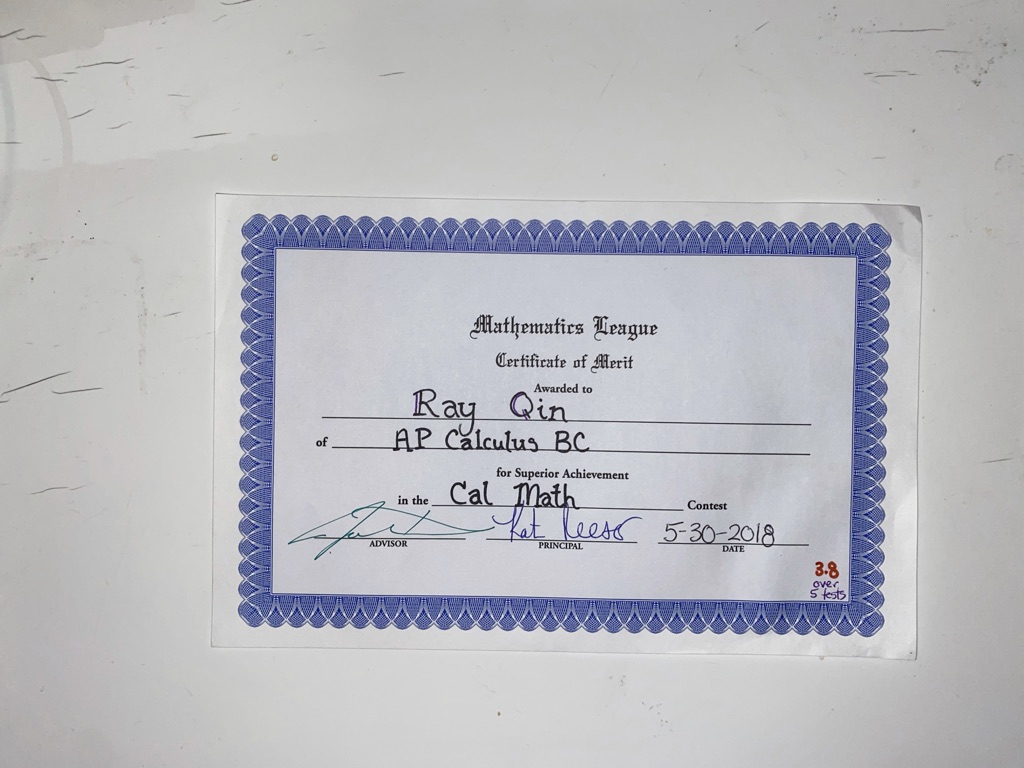 Mathematics League
Certificate of Merit
Awarded to
Ray Qin
of AP Calculus BC
for Superior Achievement
in the Cal Math Contest
Kat
5-30-2018
ADVISOR PRINCIPAL DATE
3.8
over
5 tests